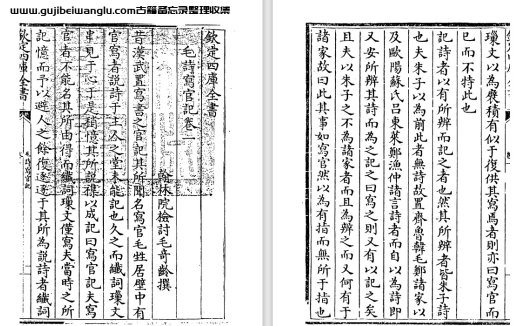 www.gujibeiwanglu.com古籍备忘录整理收集
欽定四庫全書
毛詩寫官記卷一
翰林院檢討毛奇齡撰
昔漢武置寫書之官記其所聞名寫官毛甡居壁中有
官寫者說詩于主人之堂未能記也久之而織詞瓌文
見于心于是猶憶其所說襍以成記曰寫官記夫寫
官者不能名其所由得而織詞瓌文僅寫夫當時之所
記憶而予以避人之餘復逡逡于其所為說詩者織詞
欽定四庫全書
毛詩寫官記
瓌文以為襞積有似于復供其寫焉者則亦曰寫官而
已而不特此也
記詩者以有所辨而記之者也然其所辨者皆朱子詩
也夫朱子以為前此者無詩故置齊魯韓毛鄭諸家以
及歐陽蘇氏呂東萊鄭漁仲諸言詩者而自以為詩即
又安所辨其詩而為之記之曰寫之則又有以記之矣
且夫以朱子之不為諸家者而且為辨之而又何有于
諸家故曰此其事如寫官然以為有措而無所于措也